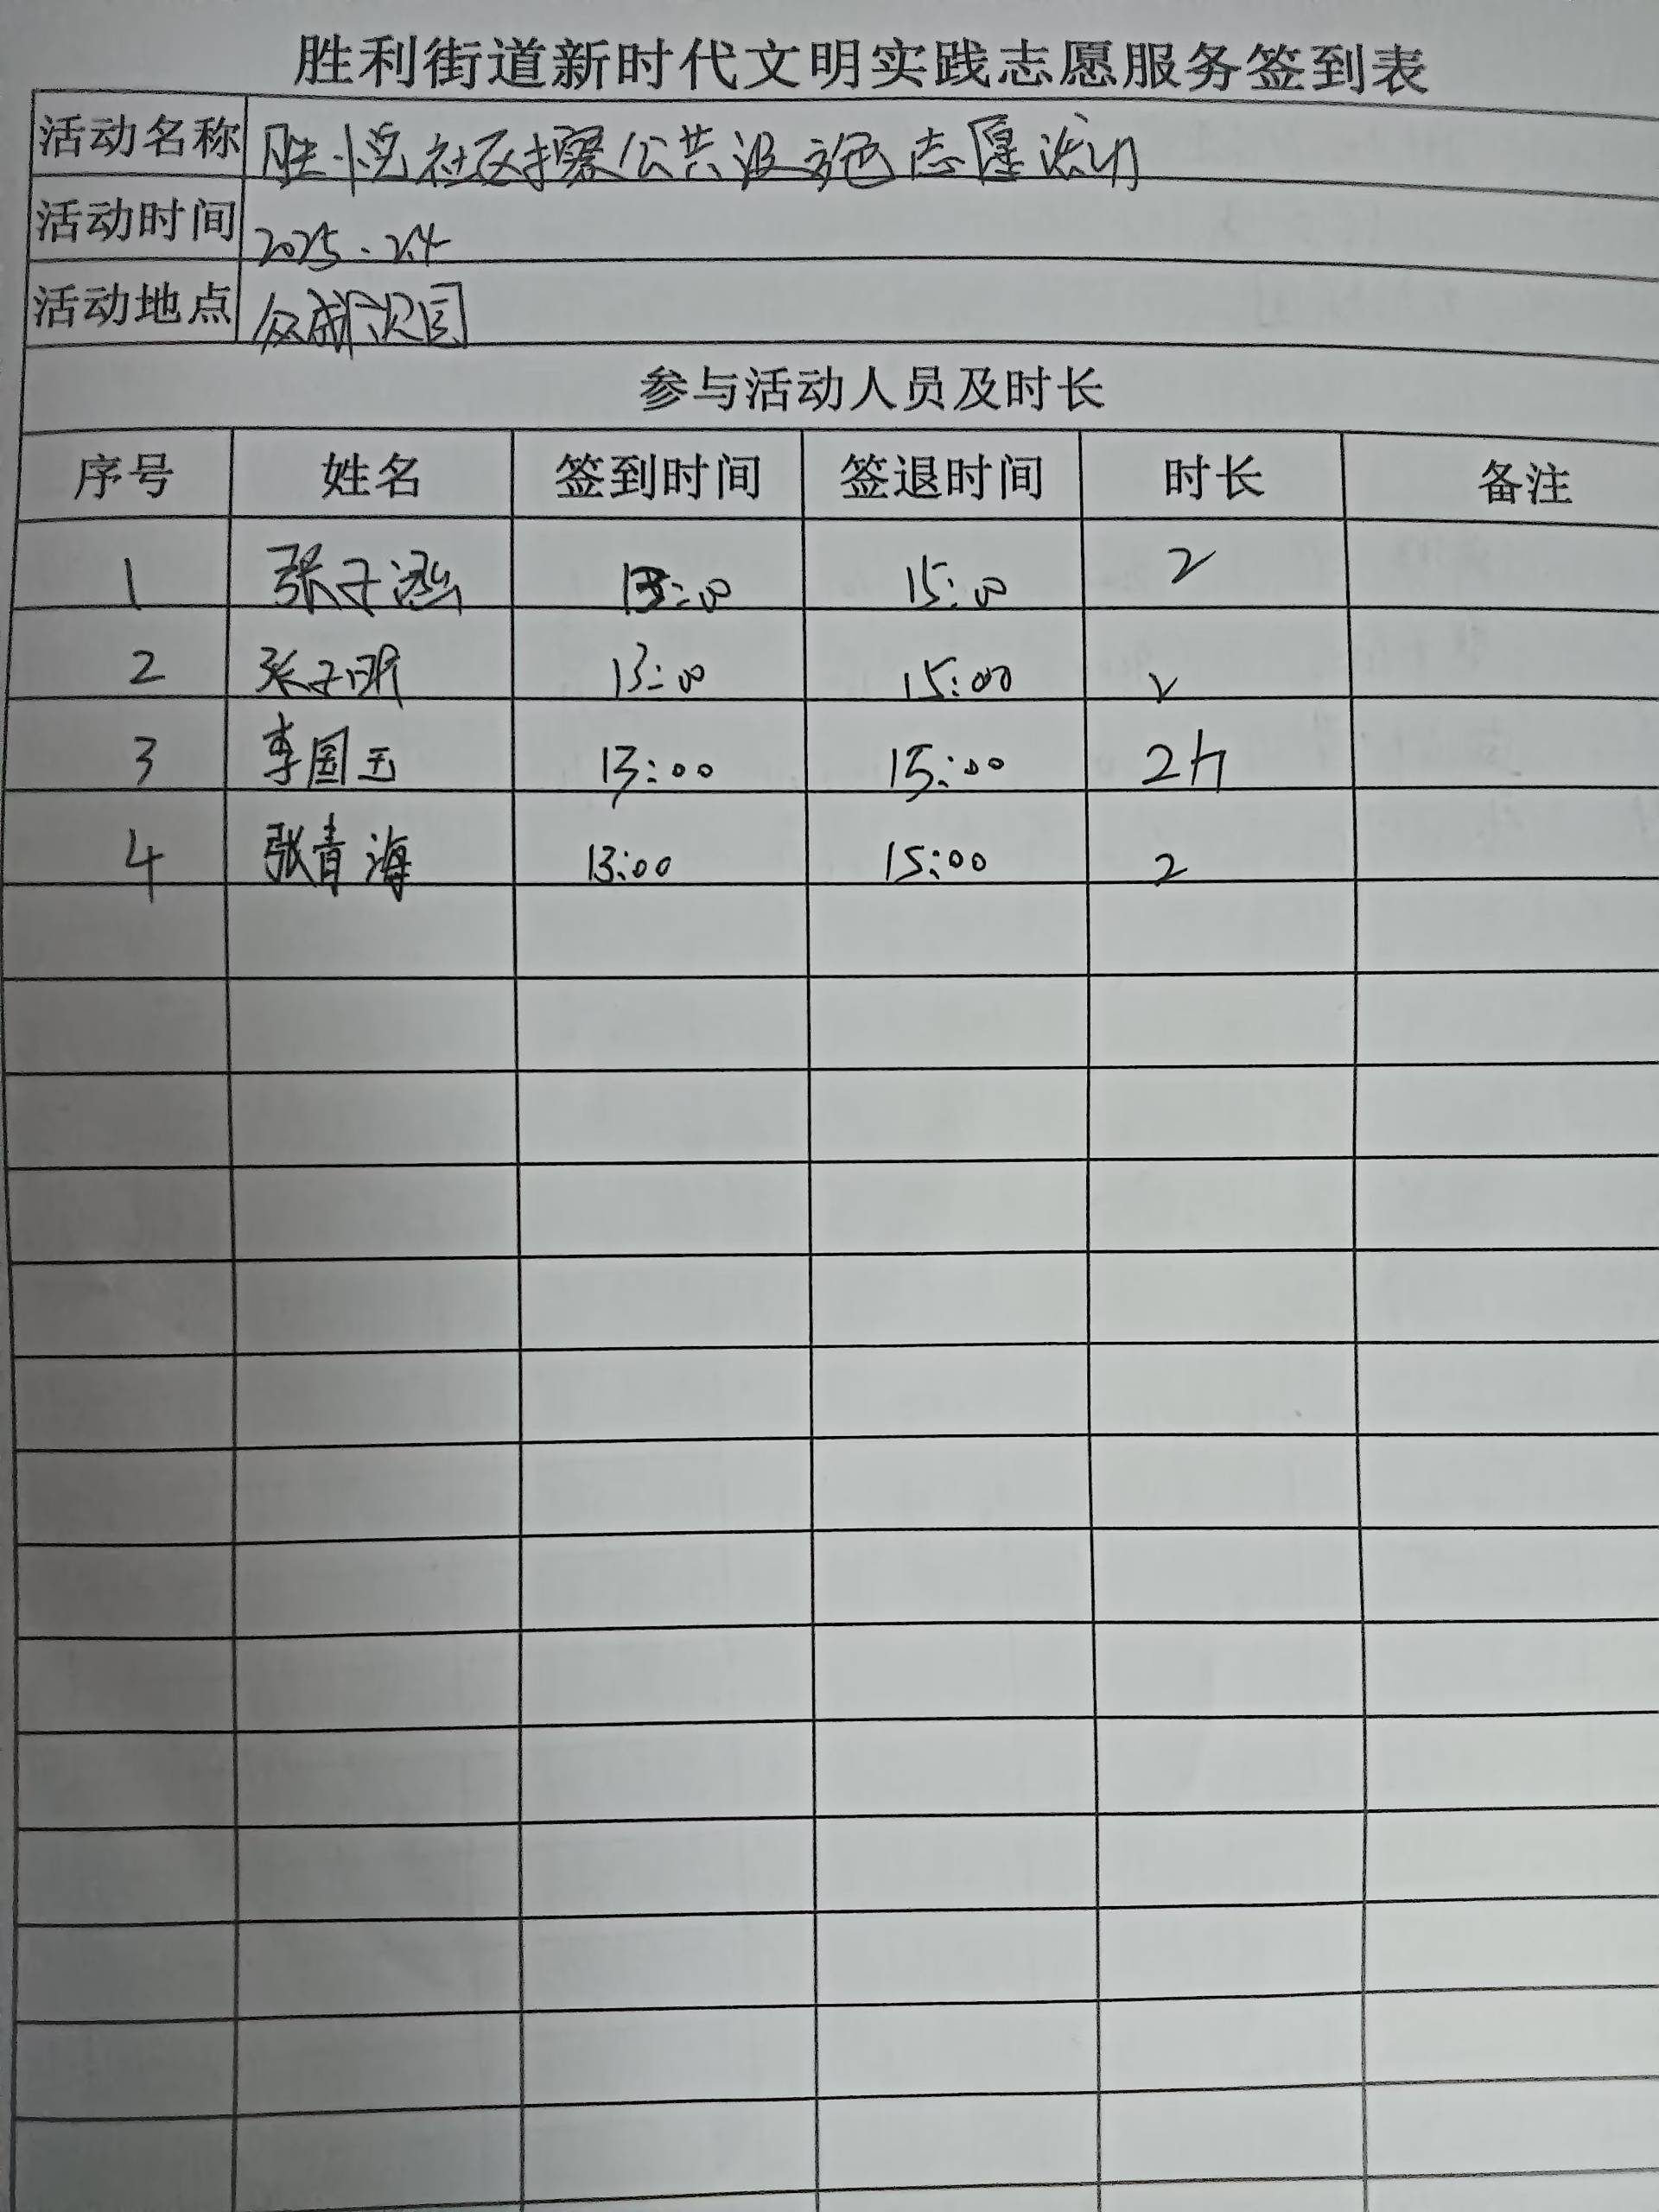 胜利街道新时代文明实践志愿服务签到表
活动名称 胜悦社区擦公共设施志愿活动
活动时间 2025.2.4
活动地点 众成
参与活动人员及时长
序号 姓名 签到时间 签退时间 时长 备注
1 张子涵 13:00 15:00 2
2 张子明 13:00 15:00 2
3 李国玉 13:00 15:00 2h
4 张青海 13:00 15:00 2